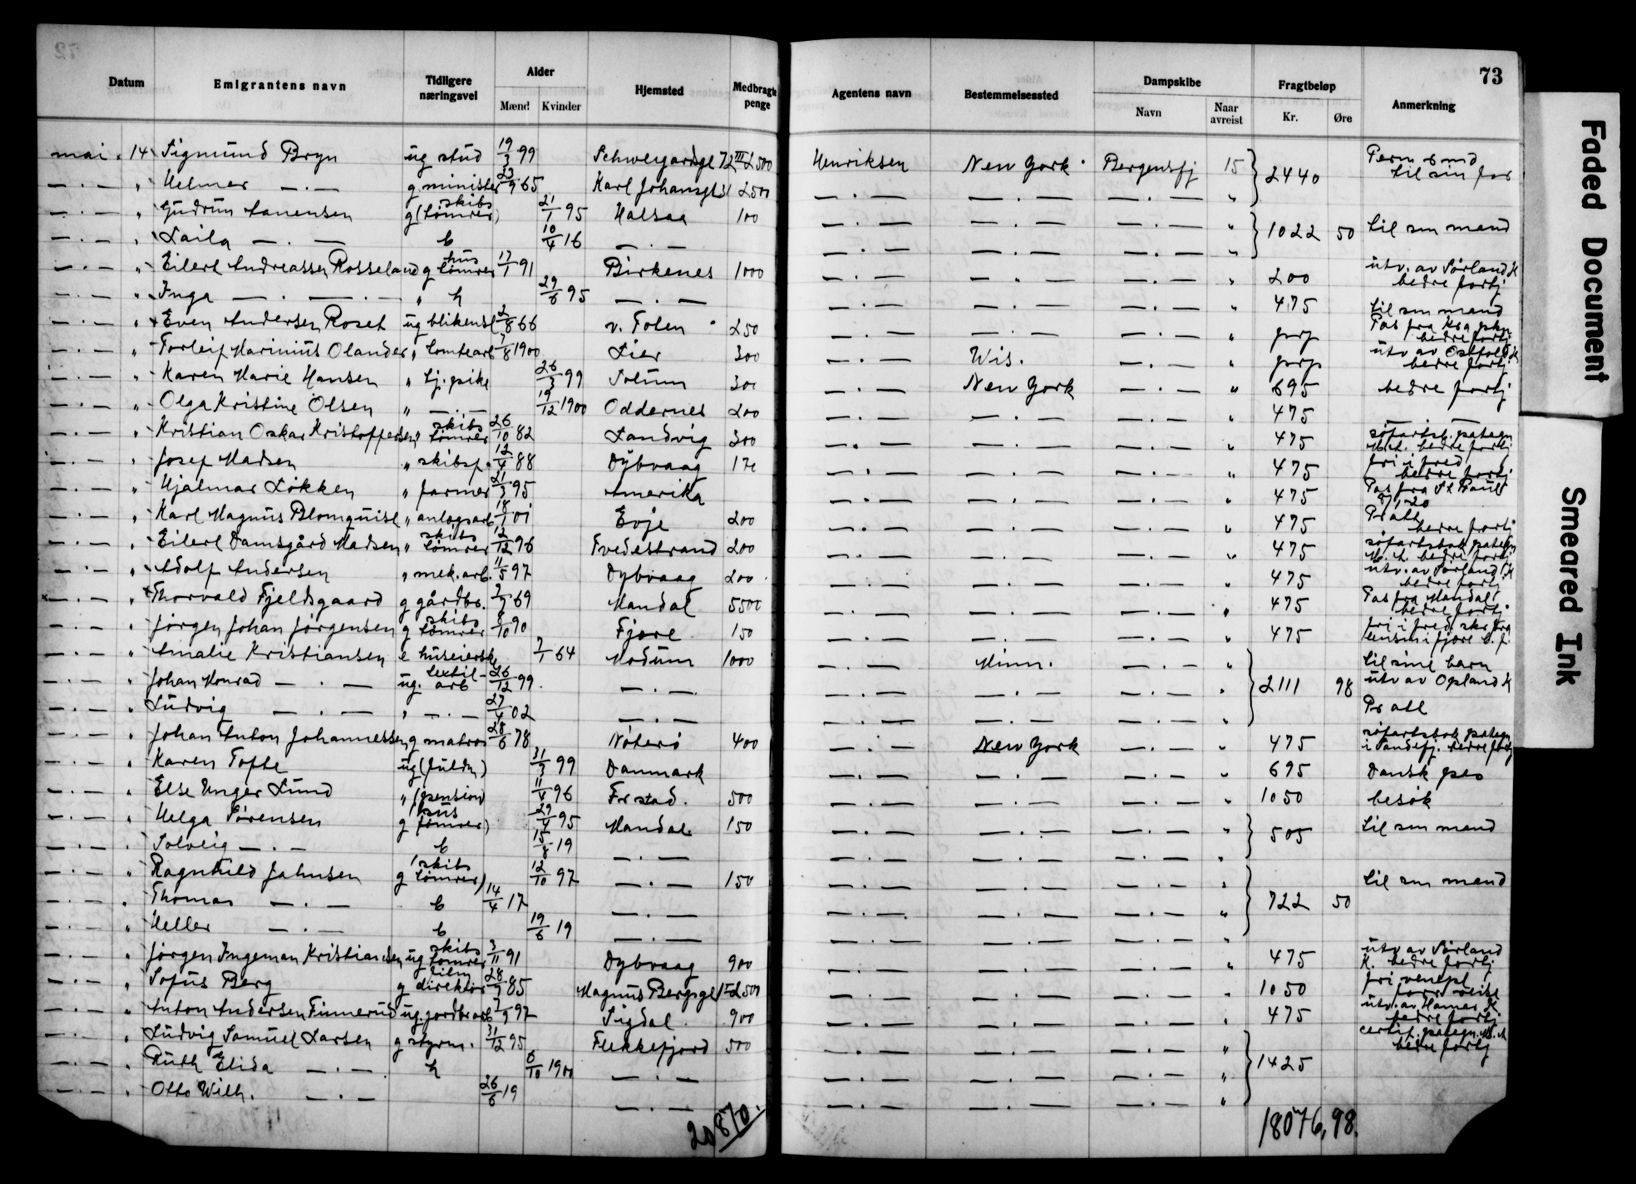 73
Datum Emigrantens navn Tidligere næringsvei Alder Mænd Kvinder Hjemsted Medbragte penge Agentens navn Bestemmelsessted Dampskibe Navn Naar avreist Fragtbeløp Kr. Øre Anmerkning
mai . 14 Sigmund Bryn ug stud 19/3 99 Schweigaardsgt 72 III 2500 Henriksen New York Bergensfj 15 2440 til sin far
— . — " Helmer — . — g minister 65 Karl Johansgt 31 2500 — . — — . — — . — "
— . — " Gudrun g (skibs tømrer) 21/1 95 Halsaa 100 — . — — . — — . — " 1022 50 til sin mand
— . — " Laila — . — b 10/4 16 — . — — . — — . — — . — "
— . — " Eilert Andreassen Rosseland g hus tømrer 17/1 91 Birkenes 1000 — . — — . — — . — " 200 utv. av Sørland K bedre fortj
— . — " Inga — . — . — " h 29/6 95 — . — — . — — . — — . — " 475 til sin mand
— . — " Even Andersen Roset ug blikensl 2/8 66 v. Toten 250 — . — — . — — . — " prp Pas fra bedre fortj
— . — " Torleif Marinius Olander " tomtearb 7/8 1900 Lier 300 — . — Wis. — . — " prp utv av Østfold K bedre fortj
— . — " Karen Marie Hansen " tj. pike 26/3 99 Solum 300 — . — New York — . — " 695 bedre fortj
— . — " Olga Kristine Olsen " — . — 19/12 1900 Oddernes 200 — . — — . — — . — " 475 — . —
— . — " Kristian Oskar Kristoffersen " skibs tømrer 26/10 82 Landvig 300 — . — — . — — . — " 475 søfartsb. påtegn bedre fortj
— . — " Josef Madsen " skibsf. 12/4 88 Dybvaag — . — — . — — . — " 475 fri i fred bedre fortj
— . — " Hjalmar Løkken " farmer 21/3 95 Amerika — . — — . — — . — " 475 Pas fra St Paul
— . — " Karl Magnus Blomquist " anlægsarb 18/1 01 Evje 200 — . — — . — — . — " 475 Pr att bedre fortj
— . — " Eilert Damsgård Madsen " skibs tømrer 12/12 96 Tvedestrand 200 — . — — . — — . — " 475 søfartsbok påtegn bedre fortj
— . — " Adolf Andersen " mek. arb. 11/5 97 Dybvaag 200 — . — — . — — . — " 475 utv. av Sørland K bedre fortj
— . — " Thorvald Fjeldsgaard g gårdbr. 69 Mandal 5500 — . — — . — — . — " 475 Pas fra Mandal bedre fortj
— . — " Jørgen Johan Jørgensen g skibs tømrer 8/10 90 Fjære 150 — . — — . — — . — " 475 fri i fred
— . — " Amalie Kristiansen e huseierske 7/1 64 Modum 1000 — . — Minn. — . — " til sine barn
— . — " Johan Konrad — . — ug. textil-arb 26/12 99 — . — — . — — . — — . — " 2111 98 utv av Opland K
— . — " Ludvig — . — " — . — 27/4 02 — . — — . — — . — — . — " Pr att
— . — " Johan Anton Johannessen g matros 28/6 78 Nøterø 400 — . — New York — . — " 475 søfartsbok påtegn i Sandefj. bedre fortj
— . — " Karen Tofte ug (fuldm) 31/3 99 Danmark — . — — . — — . — " 695 Dansk pas
— . — " Else Unger Lund " (pension) 11/4 96 Fr stad. 500 — . — — . — — . — " 1050 besøk
— . — " Helga Sørensen g (hus tømrer) 29/4 95 Mandal 150 — . — — . — — . — " 505 til sin mand
— . — " Solveig — . — b 15/8 19 — . — — . — — . — — . — "
— . — " Ragnhild Jahnsen g (skibs tømrer) 12/10 97 — . — 150 — . — — . — — . — " til sin mand
— . — " Thomas — . — b 14/4 17 — . — — . — — . — — . — " 722 50
— . — " Heller — . — b 19/6 19 — . — — . — — . — — . — "
— . — " Jørgen Ingeman Kristiansen ug skibs tømrer 3/11 91 Dybvaag 900 — . — — . — — . — " 475 utv av Sørland K. bedre fortj
— . — " Sofus Berg g film direktør 85 Magnus Bergsgt 2500 — . — — . — — . — " 1050
— . — " Anton Andersen Finnerud ug. jordbr arb 97 Sigdal 900 — . — — . — — . — " 475 utv. av Hamar K bedre fortj
— . — " Ludvig Samuel Larsen g styrm. 31/12 95 Flekkefjord 500 — . — — . — — . — " certif. påtegn. bedre fortj
— . — " Ruth Elida — . — h 6/10 1900 — . — — . — — . — — . — " 1425
— . — " Otto Wilh. — . — 26/6 19 — . — — . — — . — — . — "
20870. 18076,98.
Faded Document
Smeared Ink